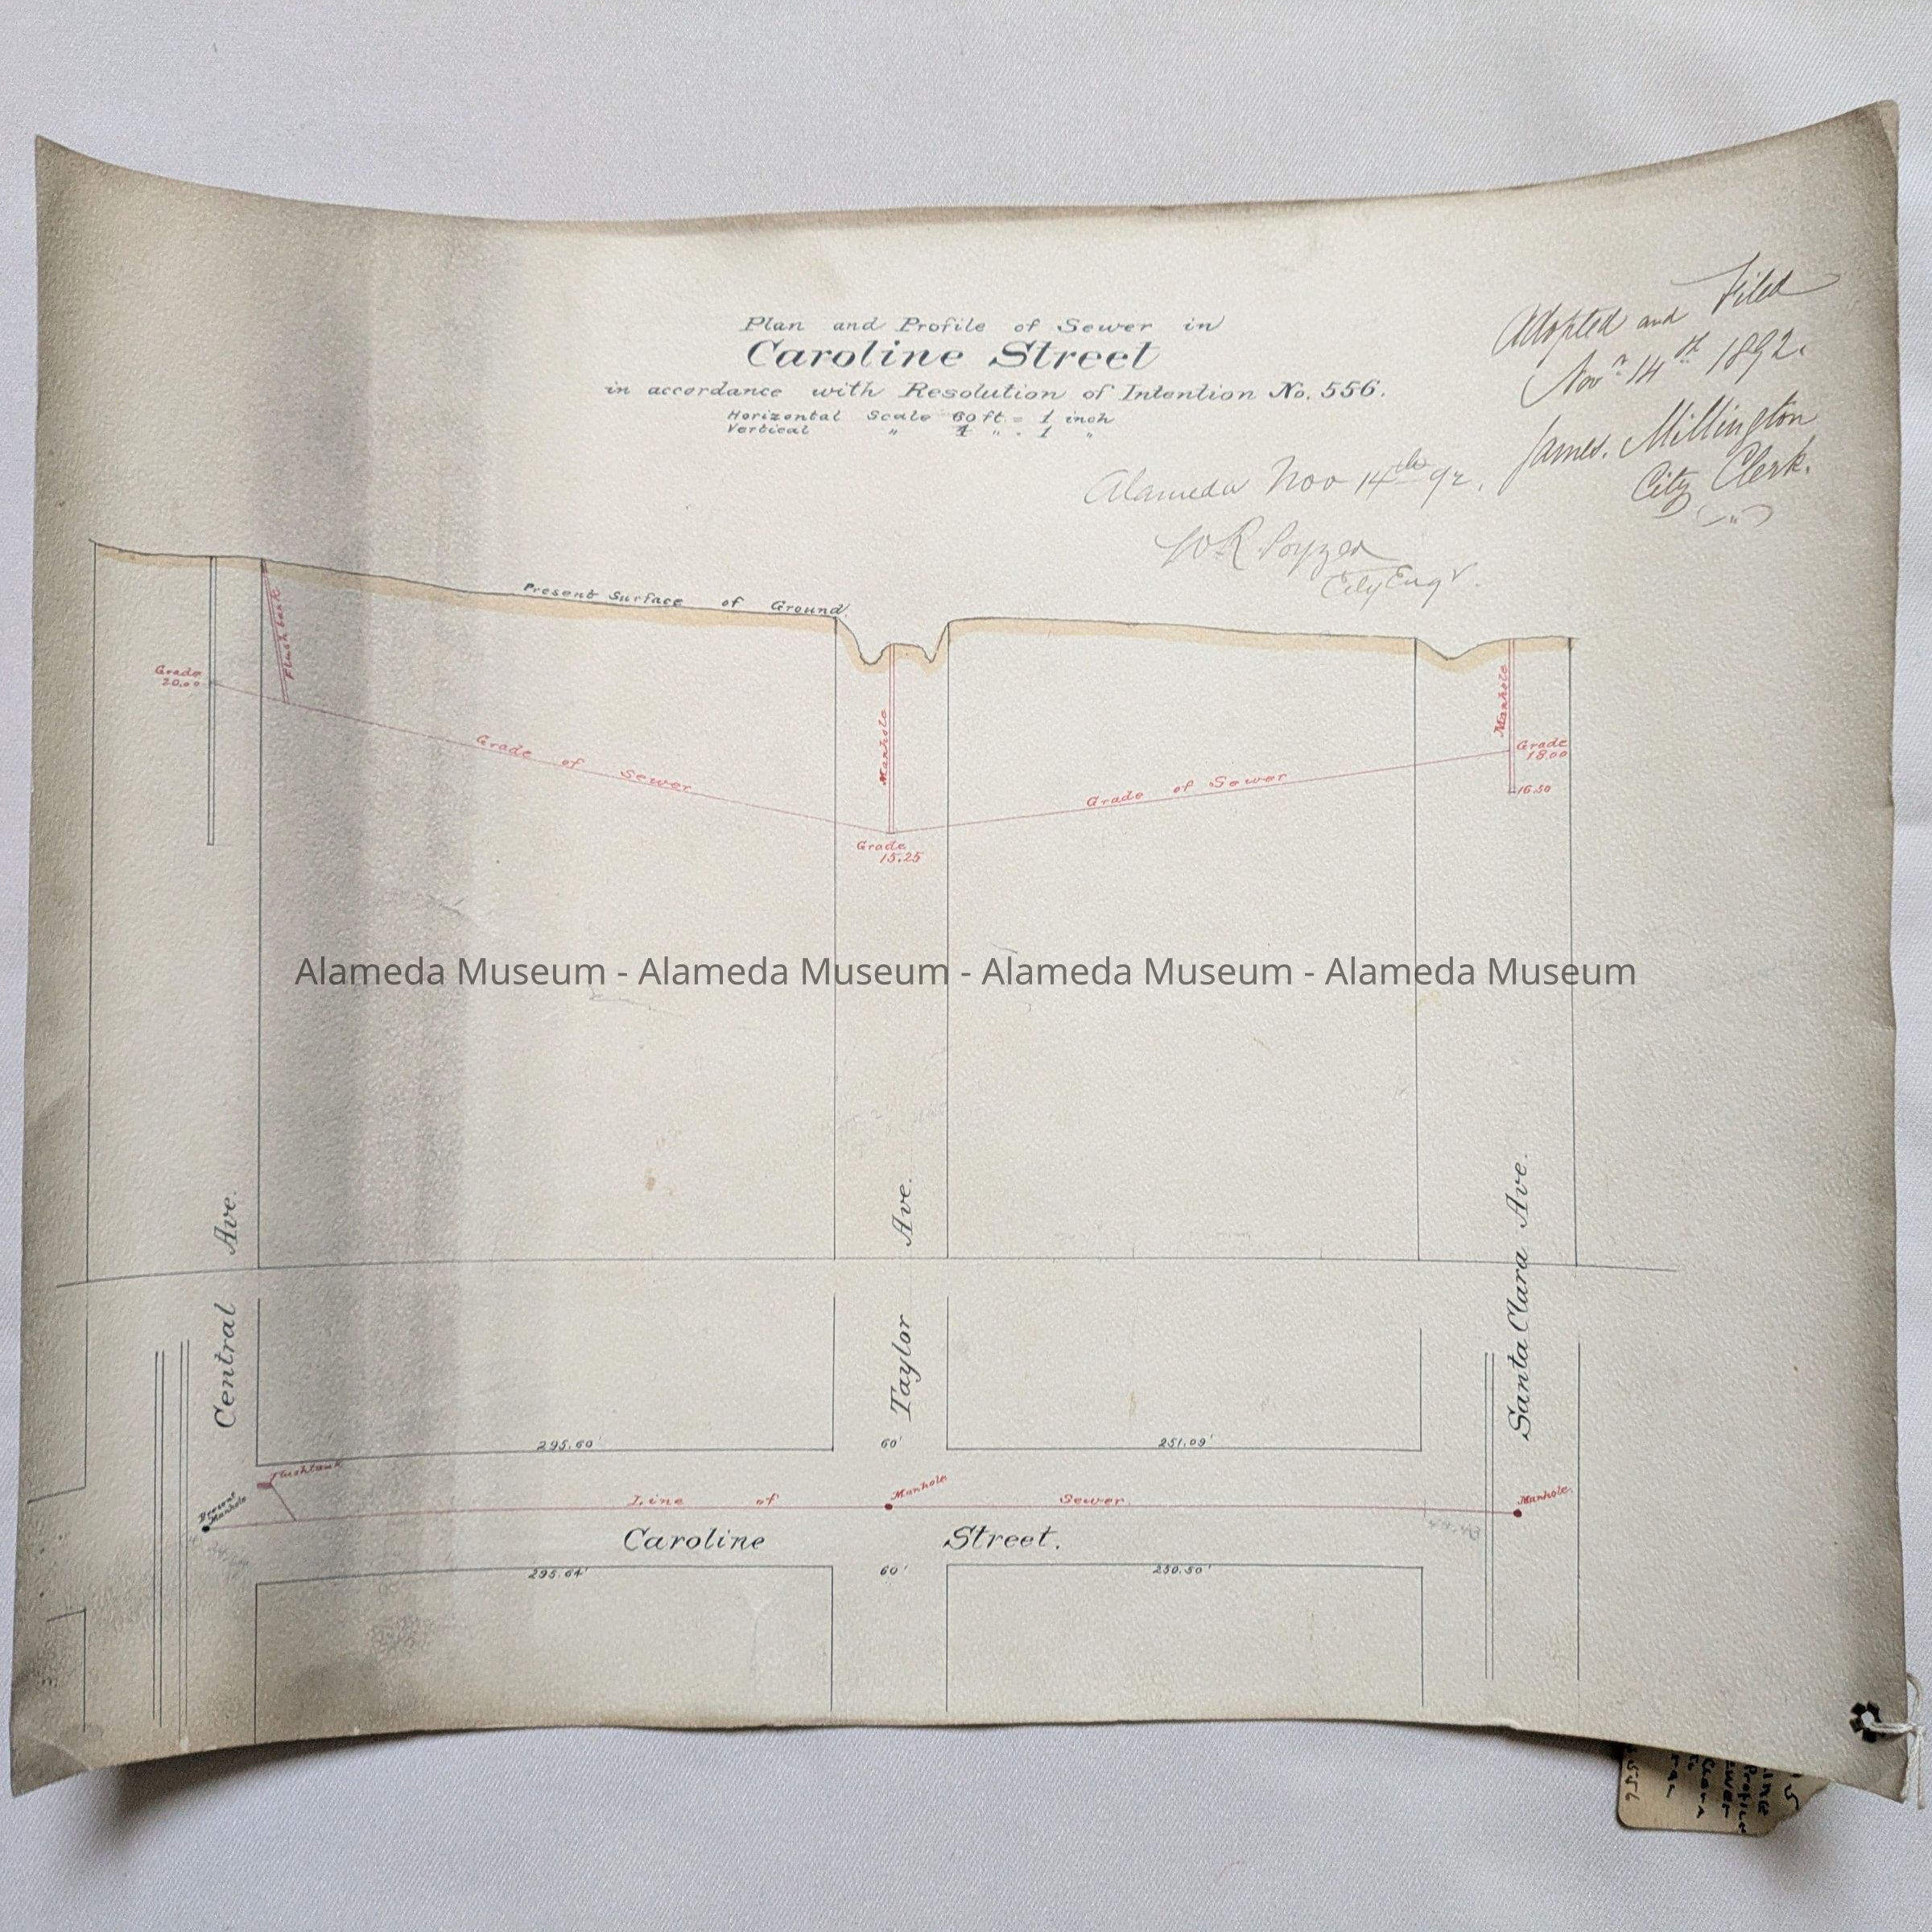 Plan and Profile of Sewer in
Caroline Street
in accordance with Resolution of Intention No. 556.
Horizontal Scale 60 ft. = 1 inch
Vertical " 4 " = 1 "
Adopted and Filed
Novr 14th 1892.
James. Millington
City Clerk.
Alameda Nov 14th 92.
W R Poyzer
City Engr.
Present Surface of Ground.
Flushtank
Grade
20.00
Grade of Sewer
Manhole
Grade
15.25
Grade of Sewer
Manhole
Grade
18.00
16.50
Alameda Museum - Alameda Museum - Alameda Museum - Alameda Museum
Central Ave.
Taylor Ave.
Santa Clara Ave.
295.60'
60'
251.09'
Flushtank
Present
Manhole
Line of Sewer.
Manhole
Manhole.
Caroline Street.
295.64'
60'
250.50'